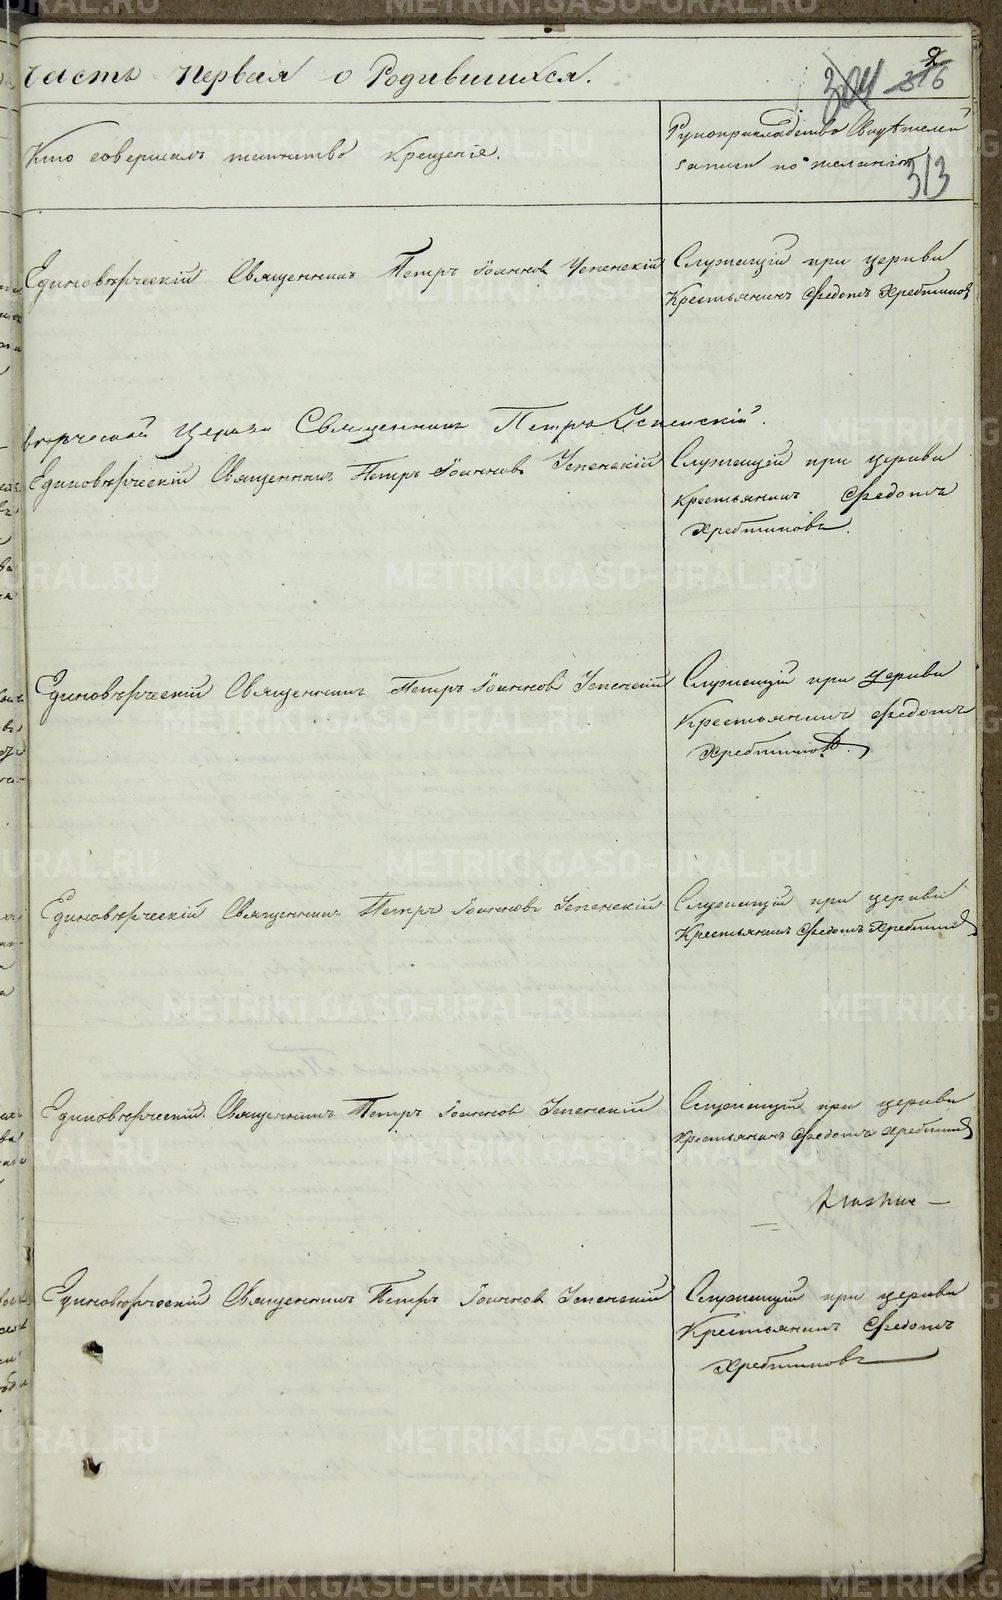 Часть Первая о Родившихся.
2
304 316
Кто совершалъ таинство Крещеніе.
Рукоприкладство Свидѣтелей
записи по желанію
313
Единовѣрческій Священникъ Петръ Іоанновъ Успенскій
Служащій при церкви
Крестьянинъ Ѳедотъ Хребтиковъ
вѣрческой Церкви Священникъ Петръ Успенскій.
Единовѣрческій Священникъ Петръ Іоанновъ Успенскій
Служащей при церкви
крестьянинъ Ѳедотъ
Хребтиковъ.
Единовѣрческій Священникъ Петръ Іоанновъ Успенскій
Служащій при Церкви
Крестьянинъ Ѳедотъ
Хребтиковъ.
Единовѣрческій Священникъ Петръ Іоанновъ Успенскій
Служащій при церкви
Крестьянинъ Ѳедотъ Хребтиковъ
Единовѣрческій Священникъ Петръ Іоанновъ Успенскій
Служащій при церкви
Крестьянинъ Ѳедотъ Хребтиковъ
Единовѣрческій Священникъ Петръ Іоанновъ Успенскій
Служащій при церкви
Крестьянинъ Ѳедотъ
Хребтиковъ
METRIKI.GASO-URAL.RU